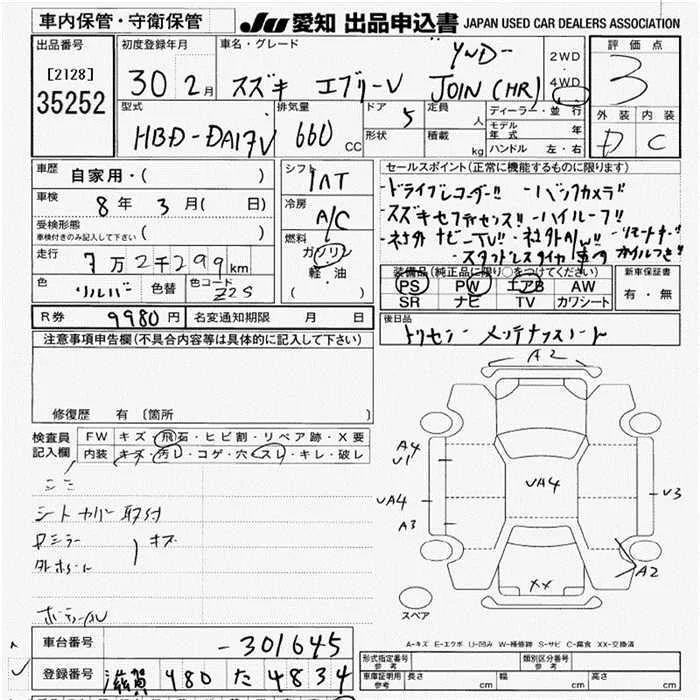 車内保管・守衛保管 JU 愛知 出品申込書 JAPAN USED CAR DEALERS ASSOCIATION
出品番号 初度登録年月 車名・グレード 2WD・4WD 評価点
[2128] 30 2月 スズキ エブリーV JOIN(HR) 3
35252
型式 排気量 ドア 定員 人 ディーラー・並行 外装 内装
HBD-DA17V 660 CC 5 形状 積載 kg モデル年式 年 D C
ハンドル 左・右
車歴 自家用・( ) シフト IAT セールスポイント(正常に機能するものに限ります)
車検 8年 3月( 日) 冷房 A/C ・ドライブレコーダー!! ・バックカメラ!!
受検形態 車検付きのみ記入して下さい ( ) ・スズキセフティセンス!! ・ハイルーフ!!
走行 7万2千299km 燃料 ガソリン ・社外ナビーTV!! ・社外A/W!!
軽・油 ・スタッドレスタイヤ
色 色替 色コード Z2S ( ) 装備品(純正品に限り○をつけてください) 新車保証書
PS PW エアB AW 有・無
SR ナビ TV カワシート
R券 9980円 名変通知期限 月 日 後日品
注意事項申告欄(不具合内容等は具体的に記入して下さい)
修復歴 有〔箇所 〕
検査員記入欄 FW キズ・飛石・ヒビ割・リペア跡・X要
内装 キズ・汚レ・コゲ・穴・スレ・キレ・破レ
シートカバー取付
キズ
A2
A4
U1
UA4
A3
UA4
U3
A2
XX
スペア
A-キズ E-エクボ U-凹み W-補修跡 S-サビ C-腐食 XX-交換済
車台番号 -301645 形式指定番号 参考 類別区分番号 参考
登録番号 滋賀 480 た 4834 車庫証明用 参考 長さ cm 幅 cm 高さ cm